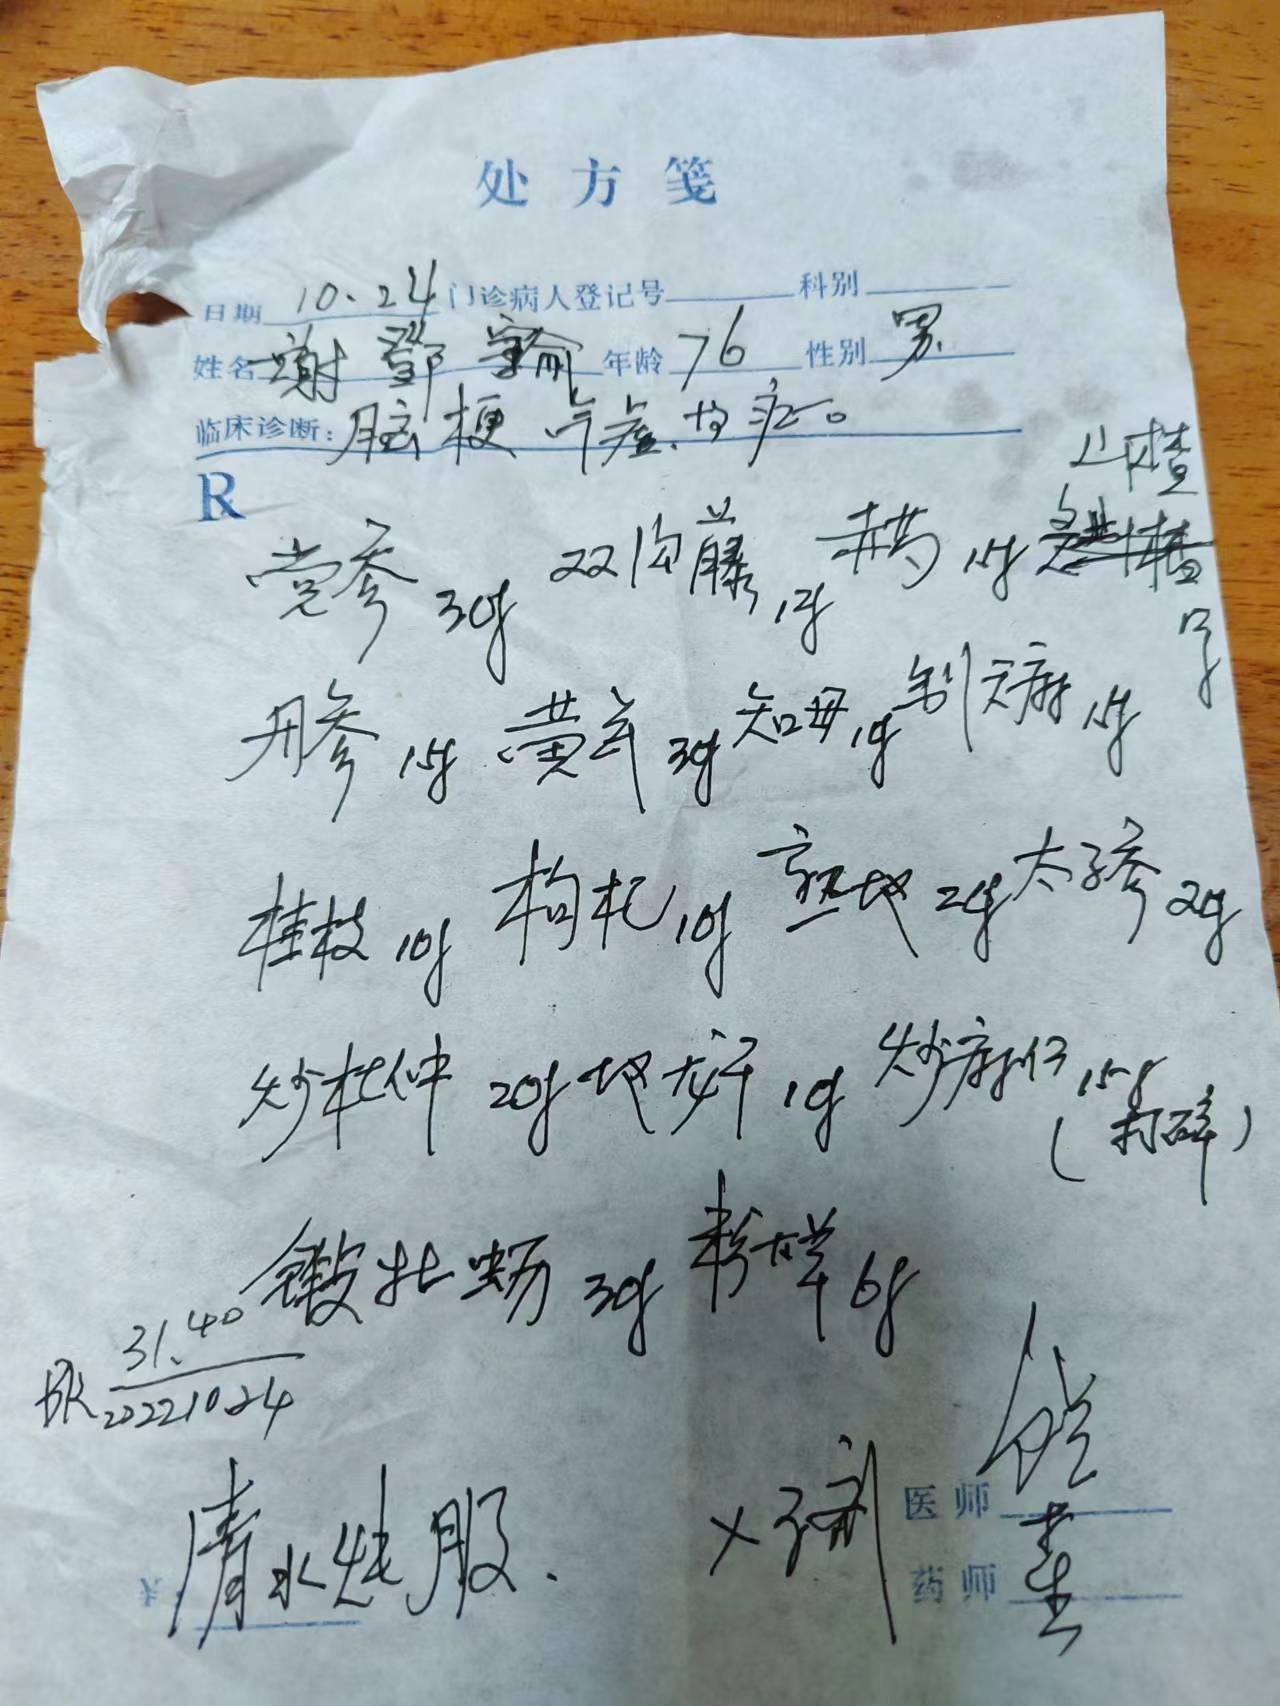 处方笺
日期 10.24 门诊病人登记号 科别
姓名 谢 年龄 76 性别 男
临床诊断: 脑梗 气虚.
R 山楂
党参 30g 双沟藤 12g 赤芍 15g
丹参 15g 黄芪 30g 知母 10g 制天麻 15g
桂枝 10g 枸杞 10g 熟地 20g 太子参 20g
炒杜仲 20g 地龙干 10g 炒麻仁 15g
(打碎)
煅牡蛎 30g 粉甘草 6g
31.40
20221024
清水炖服. ×3剂 医师
¥: 药师